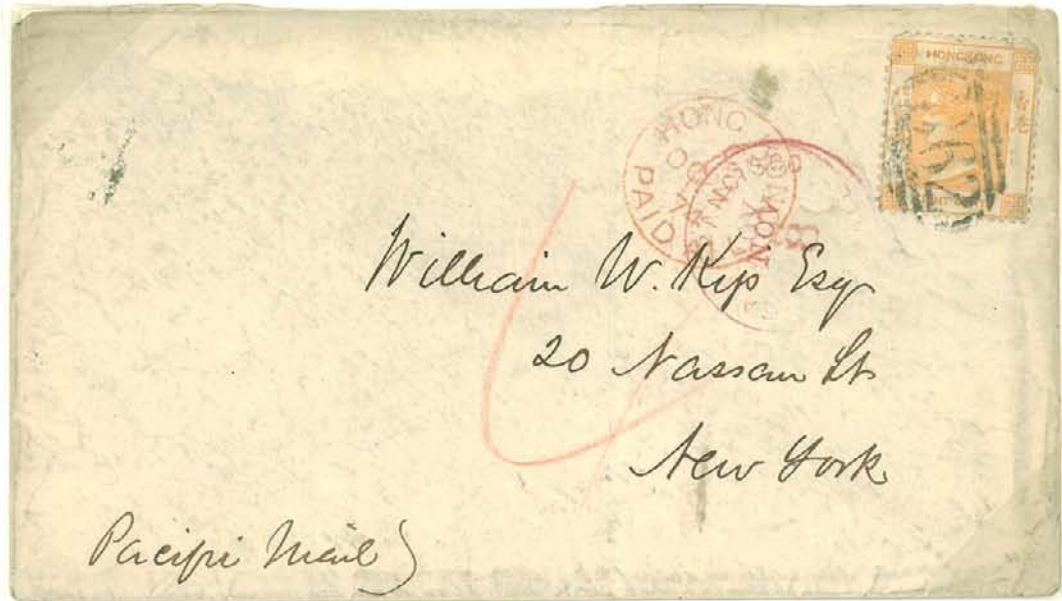 HONGKONG
B62
HONG
PAID
NOV
William W. Kip Esq
20 Nassau St
New York
Pacific Mail